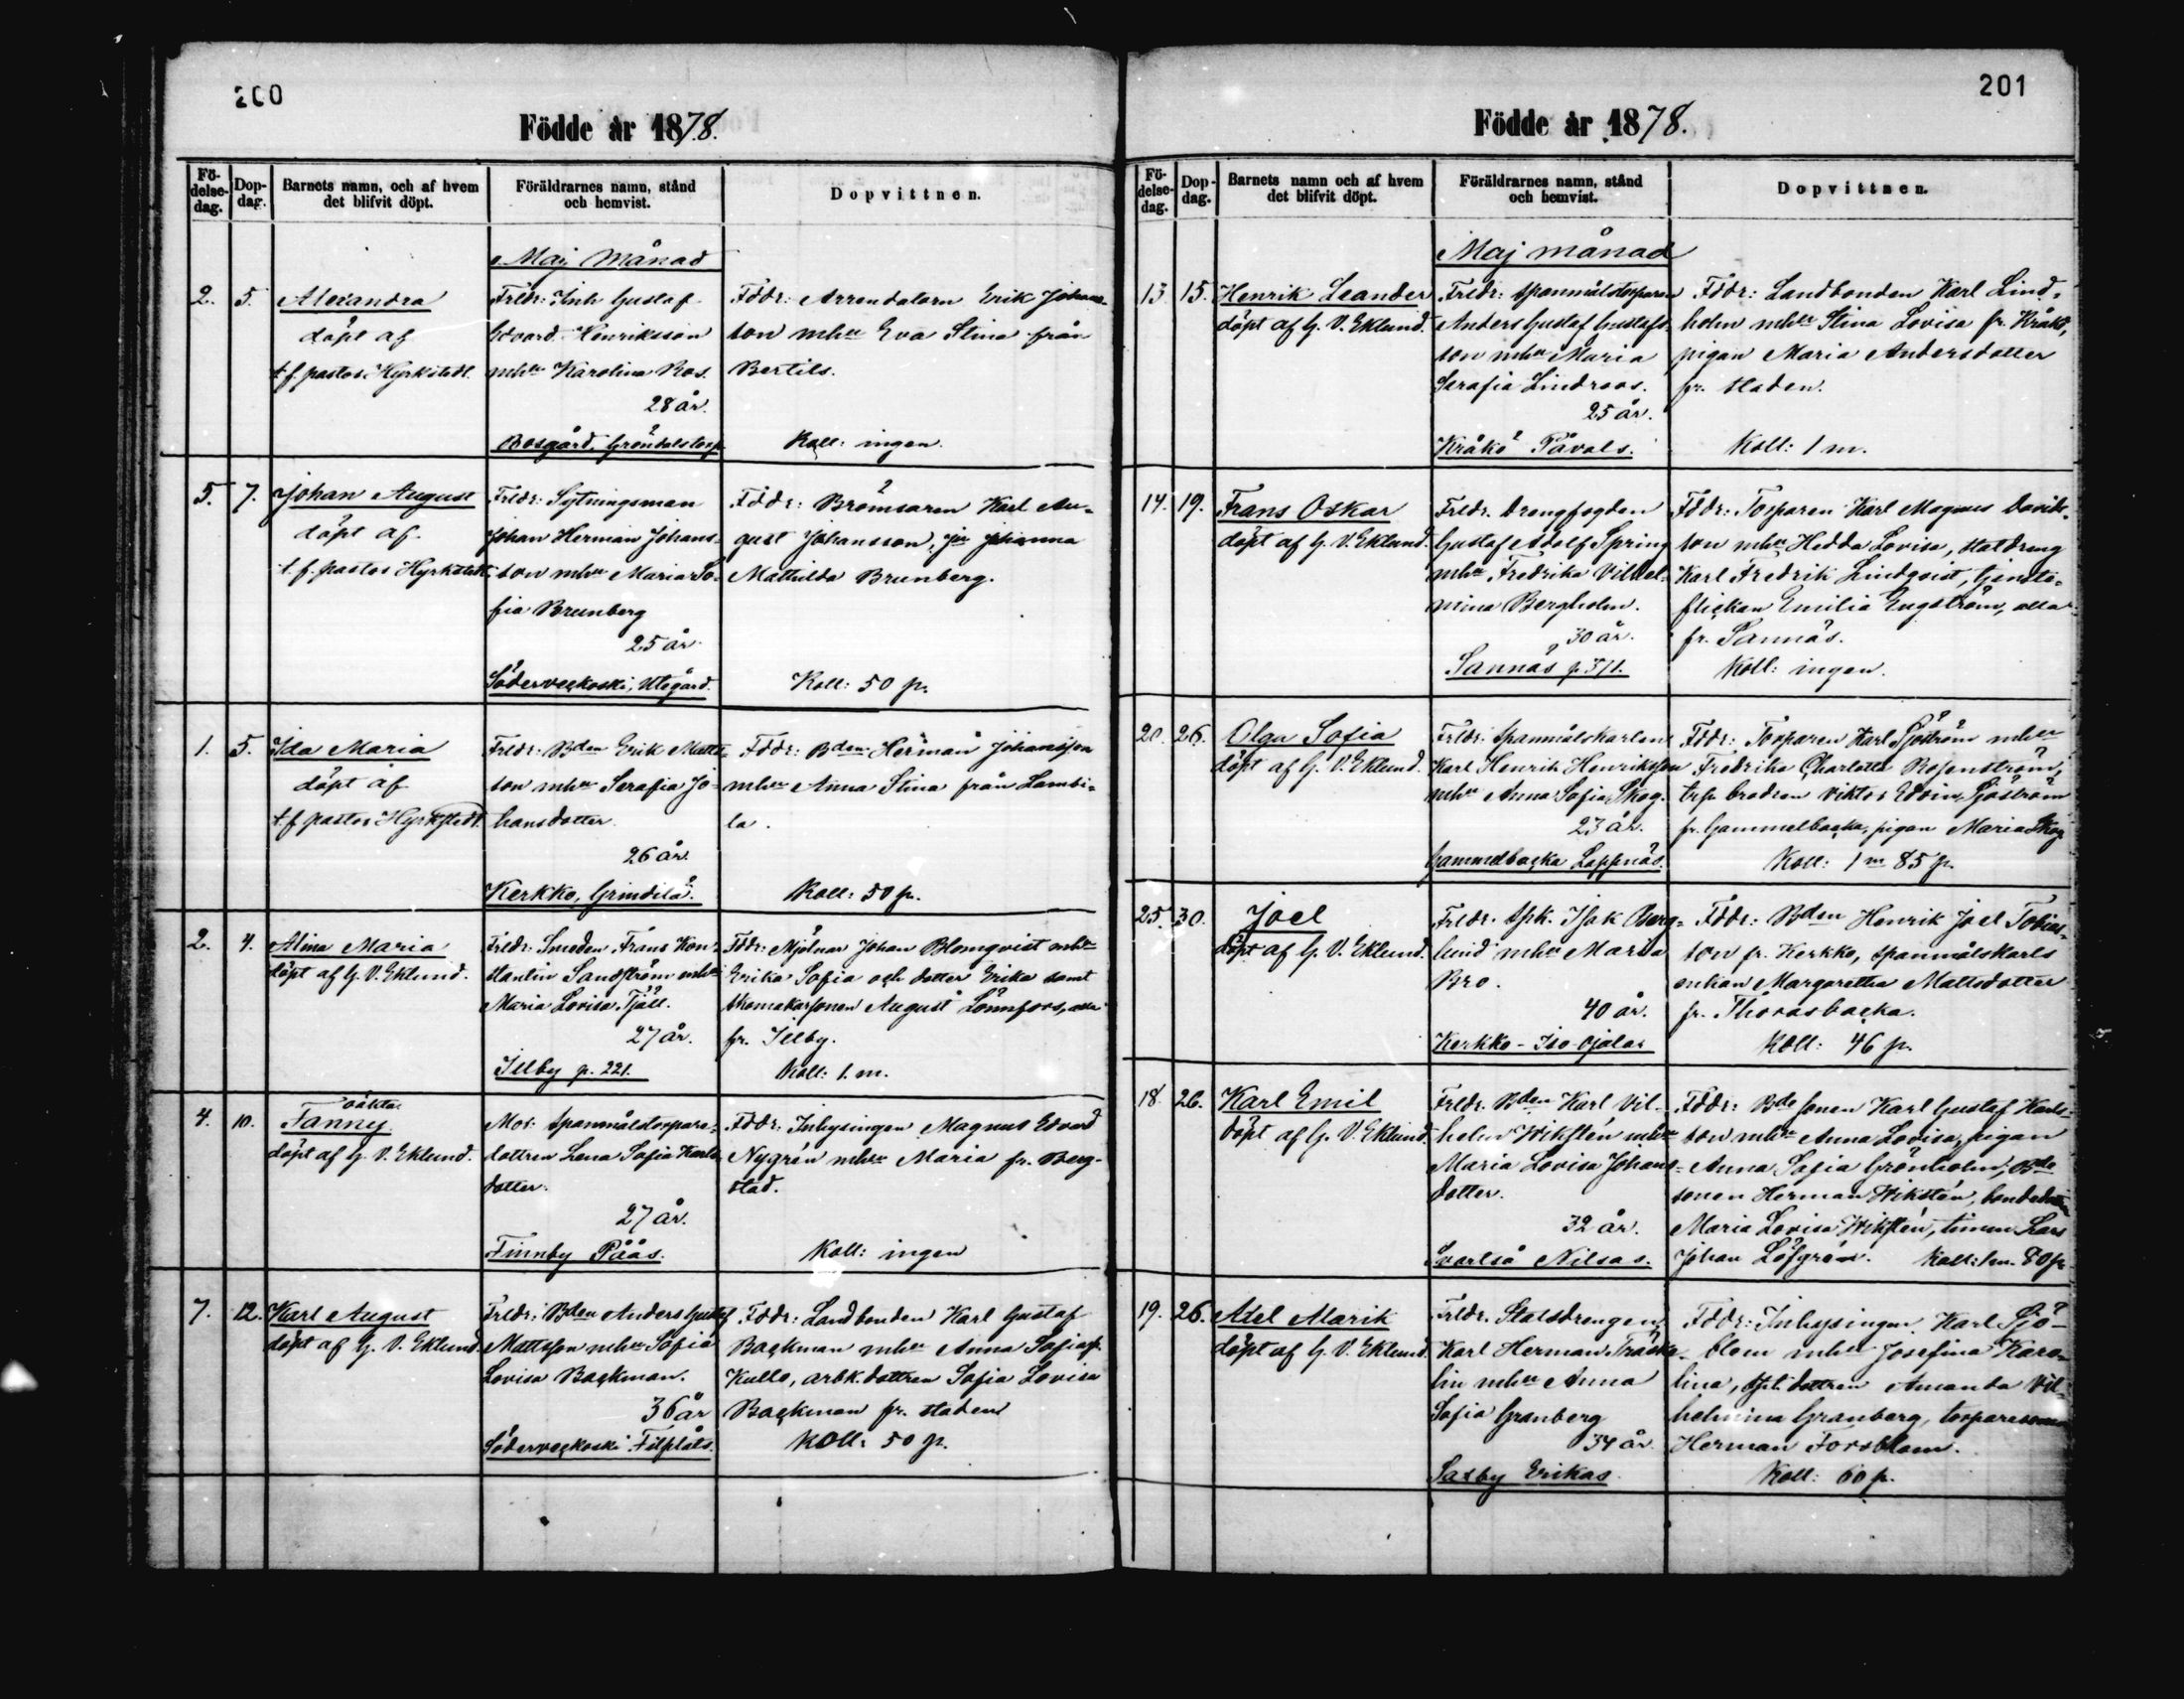 200
Födde år 1878.
Fö-
delse-
dag.
Dop-
dag.
Barnets namn, och af hvem
det blifvit döpt.
Föräldrarnes namn, stånd
och hemvist.
Dopvittnen.
Maj månad
2. 5. Alexandra
döpt af
t. f. pastor Hyrkstedt.
Frldr: Inh Gustaf
Edvard Henriksson
mhu Karolina Ros.
28 år.
Bosgård, Gröndalstorp
Fddr: Arrendatorn Erik Johans-
son mhu Eva Stina från
Bertils.
Koll: ingen.
5. 7. Johan August
döpt af
t. f. pastor Hyrkstedt.
Frldr: Sytningsman
Johan Herman Johans-
son mhu Maria So-
fia Brunberg
25 år.
Söderveckoski, Utegård.
Fddr: Bromsaren Karl Au-
gust Johansson, Johanna
Mathilda Brunberg.
Koll: 50 p.
1. 5. Ida Maria
döpt af
t. f. pastor Hyrkstedt.
Frldr: Bden Erik Matts-
son mhu Serafia Jo-
hansdotter.
26 år.
Kerkko, Grindilä.
Fddr: Bden Herman Johansson
mhu Anna Stina från Lambi-
la.
Koll: 50 p.
2. 4. Alina Maria
döpt af G. V. Eklund.
Frldr: Smeden Frans Kon-
stantin Sandström mhu
Maria Lovisa Fjäll.
27 år.
Illby p. 221.
Fddr: Mjölnar Johan Blomqvist mhu
Erika Sofia och dotter Erika samt
skomakarsonen August Lönnfors, alla
fr. Illby.
Koll: 1. m.
4. 10. oäkta
Fanny
döpt af G. V. Eklund.
Mor: Spanmålstorpare-
dottren Lena Sofia Karls-
dotter.
27 år.
Finnby Påås.
Fddr: Inhysingen Magnus Edvard
Nygrén mhu Maria fr. Berg-
stad.
Koll: ingen
7. 12. Karl August
döpt af G. V. Eklund.
Frldr: Bden Anders Gustaf
Mattsson mhu Sofia
Lovisa Backman.
36 år
Söderveckoski Filpåls.
Fddr: Landbonden Karl Gustaf
Backman mhu Anna Sofia fr.
Kullo, arbk. dottren Sofia Lovisa
Backman fr. staden
Koll: 50 p.
201
Födde år 1878.
Fö-
delse-
dag.
Dop-
dag.
Barnets namn och af hvem
det blifvit döpt.
Föräldrarnes namn, stånd
och hemvist.
Dopvittnen.
Maj månad
13. 15. Henrik Leander
döpt af G. V. Eklund.
Frldr: Spanmålstorparen
Anders Gustaf Gustafs-
son mhu Maria
Serafia Lindroos.
25 år.
Kråkö Påvals.
Fddr: Landbonden Karl Lind-
holm mhu Stina Lovisa fr. Kråkö,
pigan Maria Andersdotter
fr. staden.
Koll: 1 m.
14. 19. Frans Oskar
döpt af G. V. Eklund.
Frldr. Drengfogden
Gustaf Adolf Spring
mhu Fredrika Vilhel-
mina Bergholm.
30 år.
Sannäs p. 371.
Fddr: Torparen Karl Magnus Davids-
son mhu Hedda Lovisa, statdreng
Karl Fredrik Lindqvist, tjenste-
flickan Emilia Engström, alla
fr. Sannäs.
Koll: ingen.
20. 26. Olga Sofia
döpt af G. V. Eklund.
Frldr: Spanmålskarlen
Karl Henrik Henriksson
mhu Anna Sofia Skog.
23 år.
Gammelbacka Lappnäs.
Fddr: Torparen Karl Sjöström mhu
Fredrika Charlotta Rosenström,
trp. brodren Viktor Edvin Sjöström
fr. Gammelbacka, pigan Maria Skog
Koll: 1 m 85 p.
25. 30. Joel
döpt af G. V. Eklund.
Frldr. Spk. Isak Berg-
lund mhu Maria
Bro.
40 år.
Kerkko - Iso-Ojalas
Fddr: Bden Henrik Joel Tobias-
son fr. Kerkko, spanmålskarls
enkan Margaretha Mattsdotter
fr. Thorasbacka.
Koll: 46 p.
18. 26. Karl Emil
döpt af G. V. Eklund.
Frldr. Bden Karl Vil-
helm Wikstén mhu
Maria Lovisa Johans-
dotter.
32 år.
Svartså Nilsas.
Fddr: Bde sonen Karl Gustaf Karls-
son mhu Anna Lovisa, pigan
Anna Sofia Grönholm, Bde
sonen Herman Wikstén, bondedottren
Maria Lovisa Wikstén, timm. Lars
Johan Löfgrén. Koll: 1 m. 80 p.
19. 26. Axel Marik
döpt af G. V. Eklund.
Frldr. Statsdrengen
Karl Herman Träsk-
lin mhu Anna
Sofia Granberg
34 år.
Saxby Erikas
Fddr: Inhysingen Karl Sjö-
blom mhu Josefina Karo-
lina, dottren Amanda Vil-
helmina Granberg, torparesonen
Herman Forsblom.
Koll: 60 p.